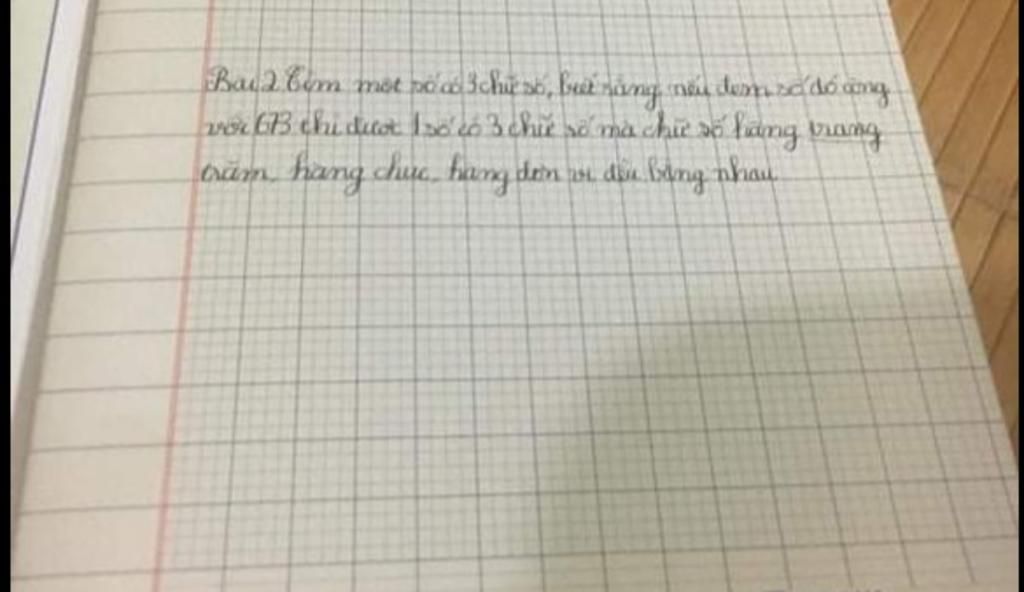 Bài 2 Tìm một số có 3 chữ số, biết rằng nếu đem số đó cộng
với 673 thì được 1 số có 3 chữ số mà chữ số hàng trang
trăm, hàng chục, hàng đơn vị đều bằng nhau